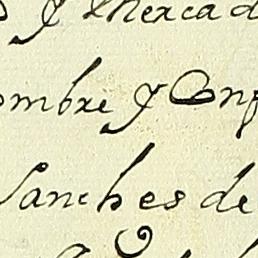 y Mercad
ombre y Con
Sanches de